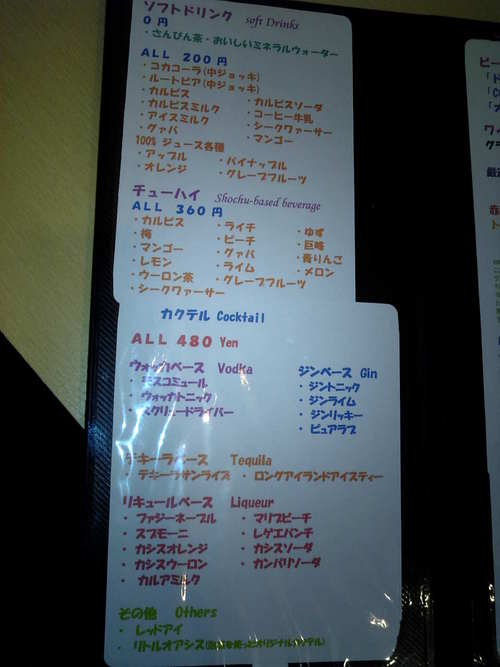 ソフトドリンク soft Drinks
0 円
・さんぴん茶・おいしいミネラルウォーター
ALL 200 円
・コカコーラ(中ジョッキ)
・ルートビア(中ジョッキ)
・カルピス ・カルピスソーダ
・カルピスミルク ・コーヒー牛乳
・アイスミルク ・シークワァーサー
・グァバ ・マンゴー
100% ジュース各種
・アップル ・パイナップル
・オレンジ ・グレープフルーツ
チューハイ Shochu-based beverage
ALL 360 円
・カルピス ・ライチ ・ゆず
・梅 ・ピーチ ・巨峰
・マンゴー ・グァバ ・青りんご
・レモン ・ライム ・メロン
・ウーロン茶 ・グレープフルーツ
・シークワァーサー
カクテル Cocktail
ALL 480 Yen
ウォッカベース Vodka ジンベース Gin
・モスコミュール ・ジントニック
・ウォッカトニック ・ジンライム
・スクリュードライバー ・ジンリッキー
・ピュアラブ
テキーラベース Tequila
・テキーラサンライズ ・ロングアイランドアイスティー
リキュールベース Liqueur
・ファジーネーブル ・マリブピーチ
・スプモーニ ・レゲエパンチ
・カシスオレンジ ・カシスソーダ
・カシスウーロン ・カンパリソーダ
・カルアミルク
その他 Others
・レッドアイ
・リトルオアシス